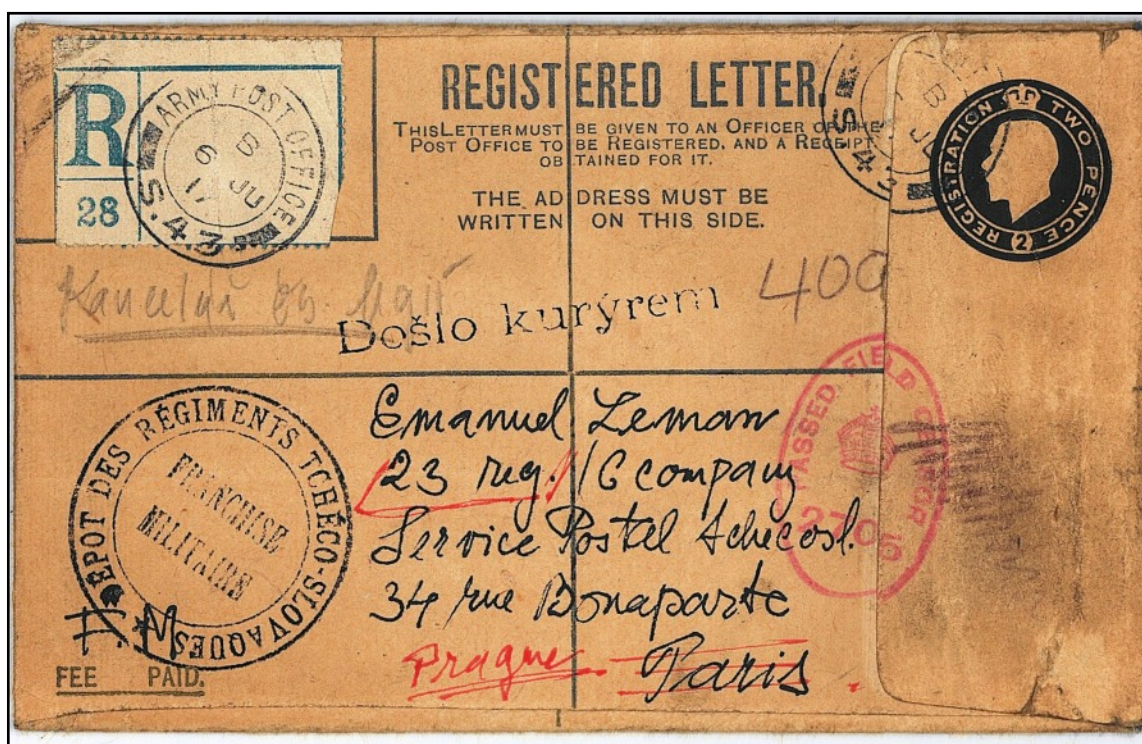 R
28
ARMY POST OFFICE
B
6 JU
17
S.43
REGISTERED LETTER.
THIS LETTER MUST BE GIVEN TO AN OFFICER OF THE
POST OFFICE TO BE REGISTERED, AND A RECEIPT
OBTAINED FOR IT.
THE ADDRESS MUST BE
WRITTEN ON THIS SIDE.
B
JU
S.43
REGISTRATION TWO PENCE (2)
400
Došlo kurýrem
DEPOT DES RÉGIMENTS TCHÉCO-SLOVAQUES
FRANCHISE
MILITAIRE
PASSED FIELD CENSOR
270
Emanuel Leman
23 reg. / 6 company
Service Postel tchecosl.
34 rue Bonaparte
Prague Paris
F. M.
FEE PAID.